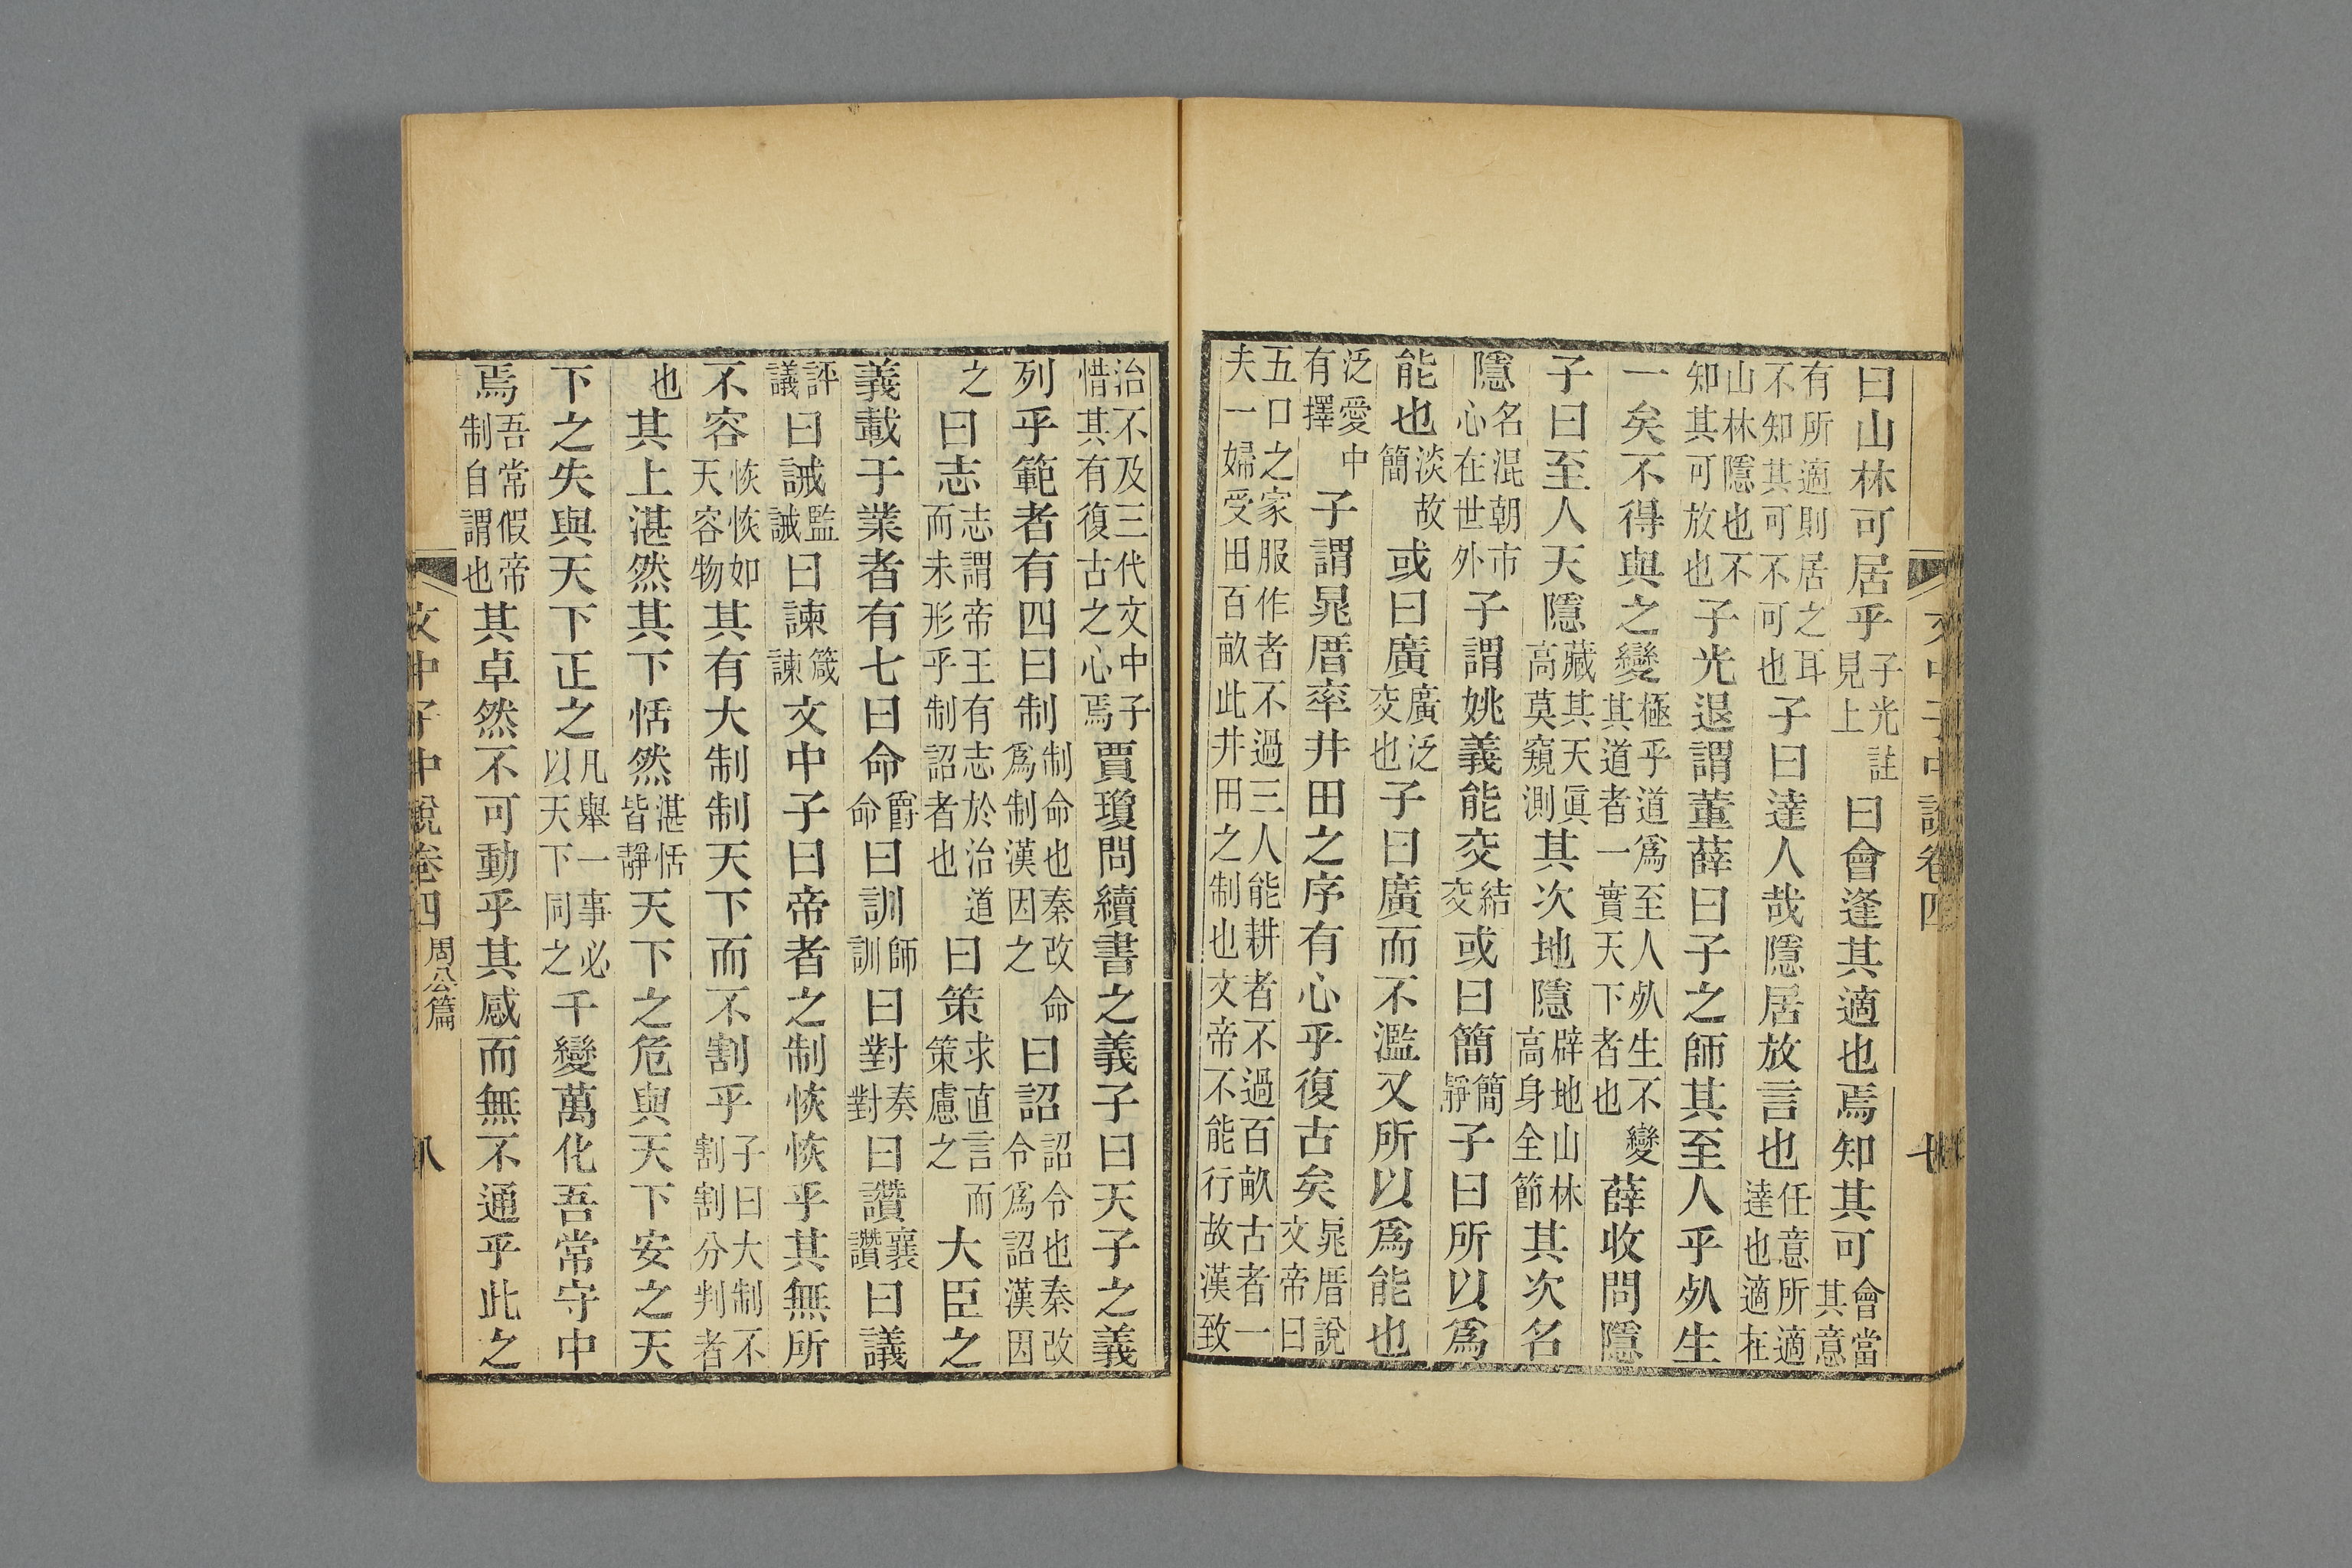 文中子中說卷四 七
曰山林可居乎子光註見上曰會逢其適也焉知其可會當其意
有所適則居之耳不知其可不可也子曰達人哉隱居放言也任意所適達也適在
山林隱也不知其可放也子光退謂董薛曰子之師其至人乎死生
一矣不得與之變極乎道爲至人死生不變其道者一實天下者也薛收問隱
子曰至人天隱藏其天眞高莫窺測其次地隱辟地山林高身全節其次名
隱名混朝市心在世外子謂姚義能交結交或曰簡簡靜子曰所以爲
能也淡故簡或曰廣廣泛交也子曰廣而不濫又所以爲能也
泛愛中有擇子謂晁厝率井田之序有心乎復古矣晁厝說文帝曰
五口之家服作者不過三人能耕者不過百畝古者一夫一婦受田百畝此井田之制也文帝不能行故漢致
治不及三代文中子惜其有復古之心焉賈瓊問續書之義子曰天子之義
列乎範者有四曰制制命也秦改命爲制漢因之曰詔詔令也秦改令爲詔漢因
之曰志志謂帝王有志於治道而未形乎制詔者也曰策求直言而策慮之大臣之
義載于業者有七曰命爵命曰訓師訓曰對奏對曰讚襄讚曰議
評議曰誡監誡曰諫箴諫文中子曰帝者之制恢恢乎其無所
不容恢恢如天容物其有大制制天下而不割乎子曰大制不割割分判者
也其上湛然其下恬然湛恬皆靜天下之危與天下安之天
下之失與天下正之凡舉一事必以天下同之千變萬化吾常守中
焉吾常假帝制自謂也其卓然不可動乎其感而無不通乎此之
文中子中說卷四周公篇 八